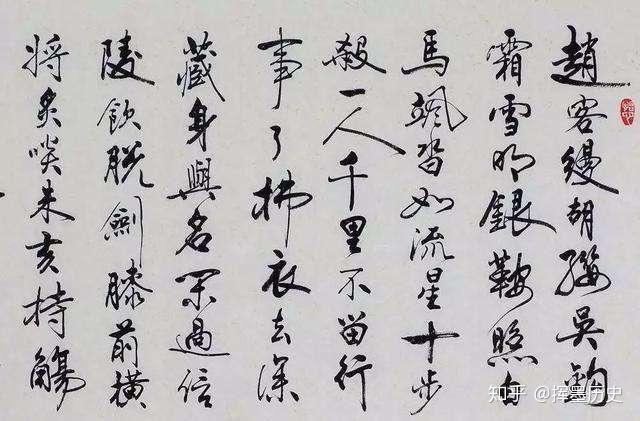 趙客縵胡纓吳鉤
霜雪明銀鞍照白
馬颯沓如流星十步
殺一人千里不留行
事了拂衣去深
藏身與名閑過信
陵飲脫劍膝前橫
將炙啖朱亥持觴
知乎 @挥墨历史